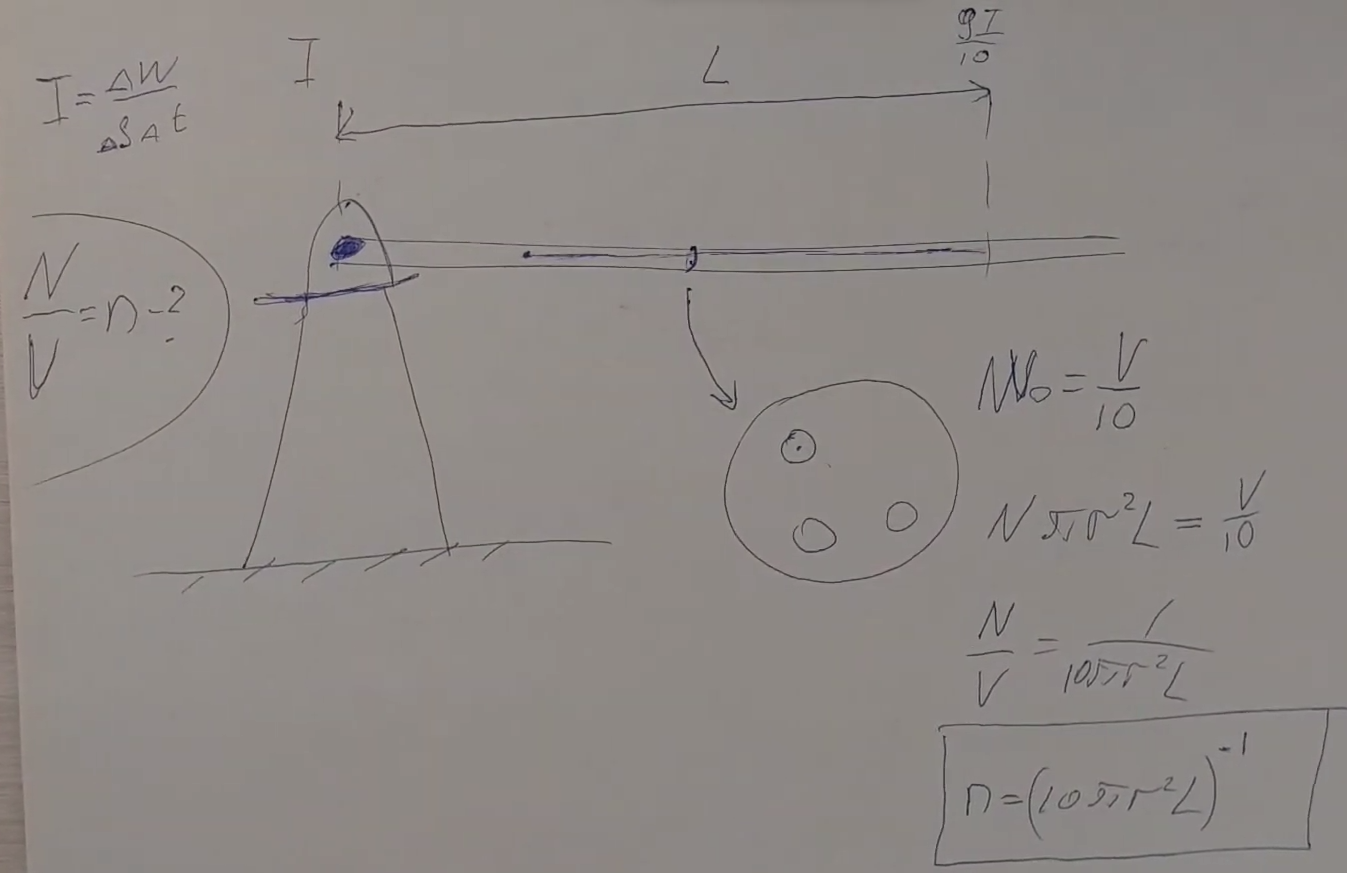 I = ΔW / ΔS Δt
I
L
9I / 10
N / V = n - ?
N V₀ = V / 10
N π r² L = V / 10
N / V = 1 / 10πr²L
n = (10πr²L)⁻¹